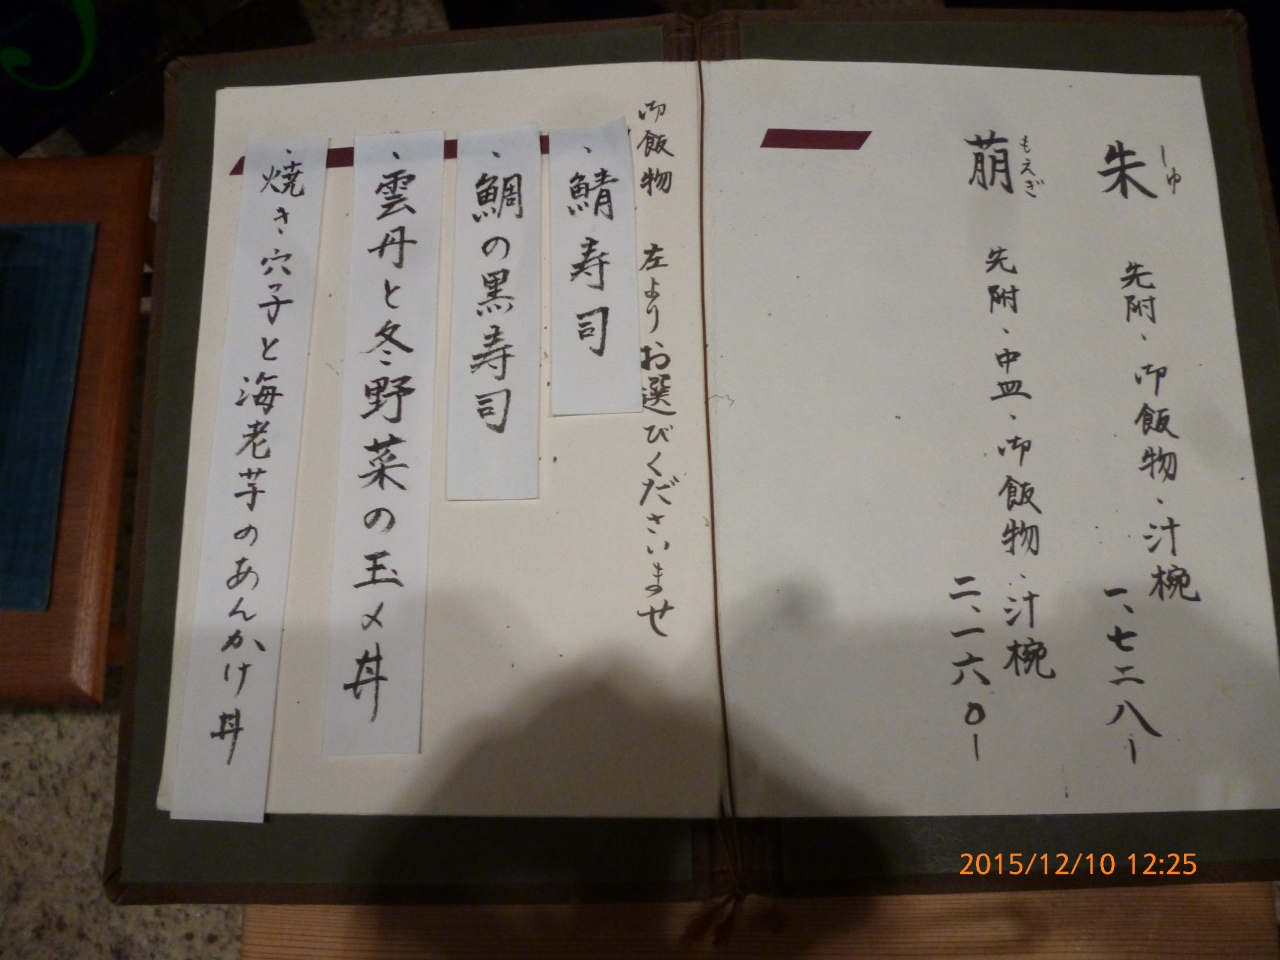 朱
しゅ
先附、御飯物、汁椀
一、七二八ー
萠
もえぎ
先附、中皿、御飯物、汁椀
二、一六〇ー
御飯物 左よりお選びくださいませ
、鯖寿司
、鯛の黒寿司
、雲丹と冬野菜の玉〆丼
、焼き穴子と海老芋のあんかけ丼
2015/12/10 12:25